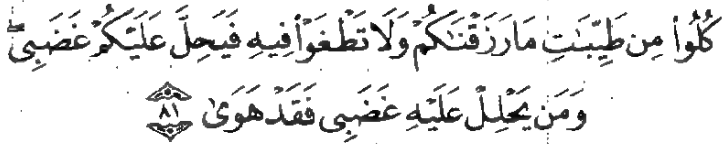 كُلُوا۟ مِن طَيِّبَـٰتِ مَا رَزَقْنَـٰكُمْ وَلَا تَطْغَوْا۟ فِيهِ فَيَحِلَّ عَلَيْكُمْ غَضَبِى ۖ
وَمَن يَحْلِلْ عَلَيْهِ غَضَبِى فَقَدْ هَوَىٰ ٨١